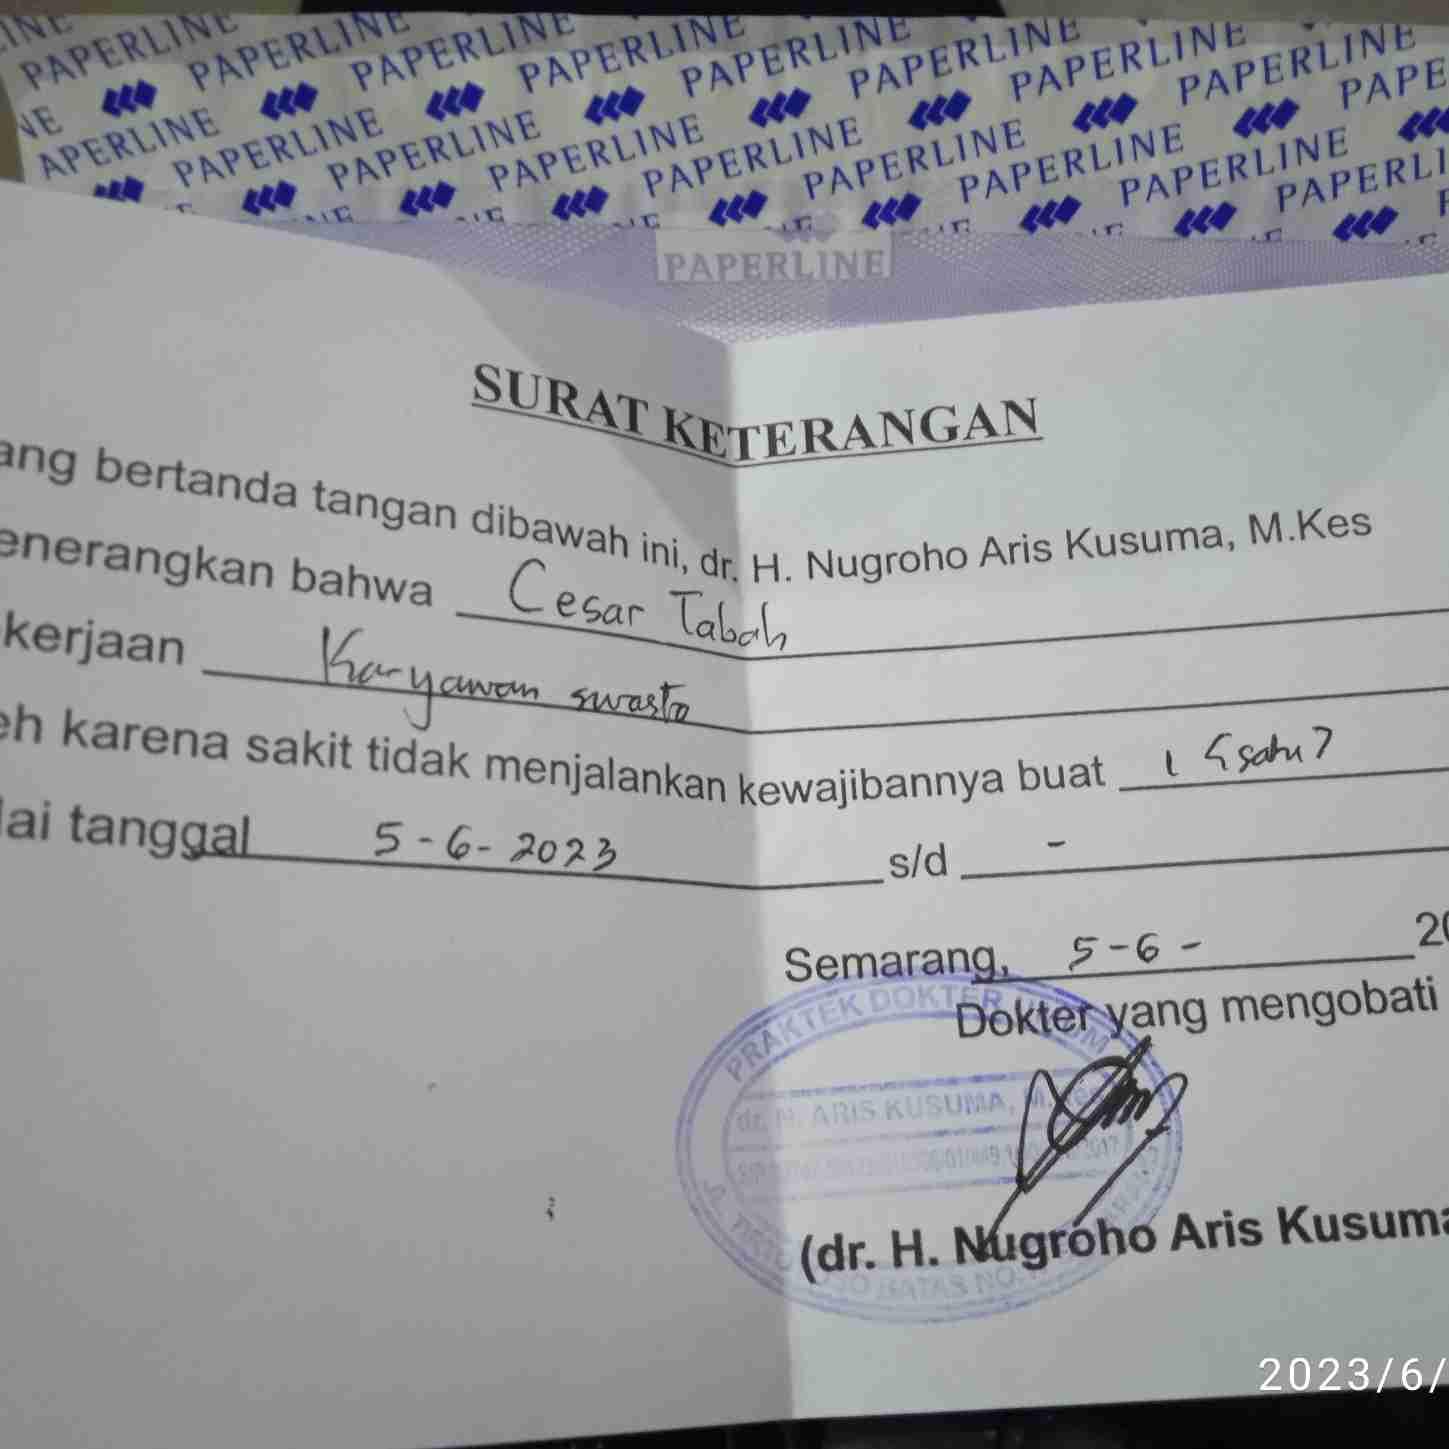 PAPERLINE PAPERLINE PAPERLINE PAPERLINE PAPERLINE PAPERLINE PAPERLINE PAPERLINE
APERLINE PAPERLINE PAPERLINE PAPERLINE PAPERLINE PAPERLINE PAPERLINE PAPERLINE PAPE
PAPERLINE
SURAT KETERANGAN
ang bertanda tangan dibawah ini, dr. H. Nugroho Aris Kusuma, M.Kes
enerangkan bahwa Cesar Tabah
kerjaan Karyawan swasta
eh karena sakit tidak menjalankan kewajibannya buat 1 (satu)
lai tanggal 5-6-2023 s/d -
Semarang, 5-6- 20
Dokter yang mengobati
PRAKTEK DOKTER UMUM
dr. H. ARIS KUSUMA, M.Kes
BATAS NO.
(dr. H. Nugroho Aris Kusuma
2023/6/